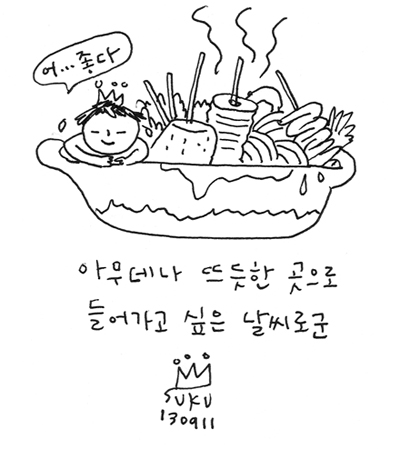 어...좋다
아무데나 뜨듯한 곳으로
들어가고 싶은 날씨로군
SUKU
130911